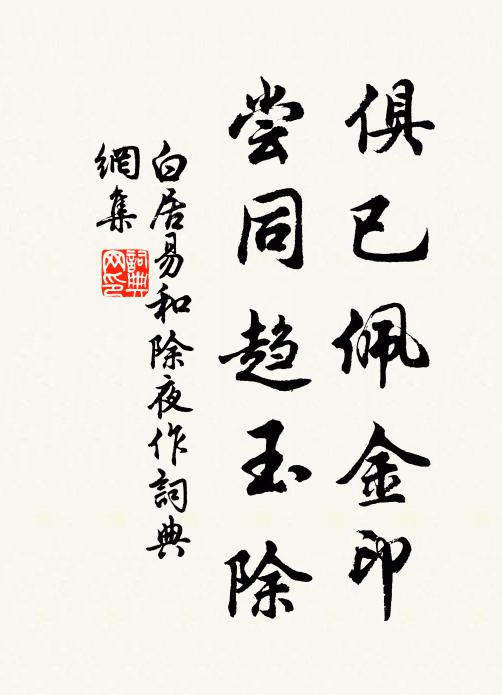 俱已佩金印
尝同趋玉除
白居易和除夜作詞典
網集
詞典网印